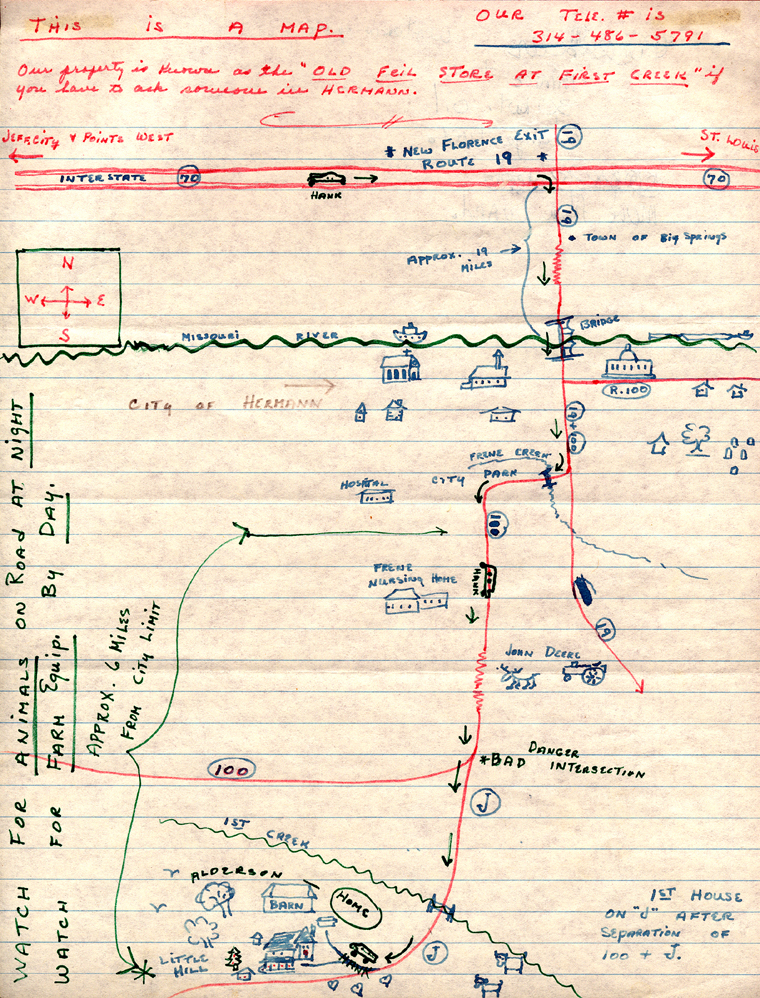 THIS IS A MAP.
OUR TELE. # IS
314-486-5791
Our property is known as the "OLD FEIL STORE AT FIRST CREEK" if
you have to ask someone in HERMANN.
JEFF CITY & POINTS WEST
* NEW FLORENCE EXIT
ROUTE 19 *
19
ST. LOUIS
INTERSTATE 70
HANK
70
19
APPROX. 19
MILES
* TOWN OF BIG SPRINGS
N
W E
S
MISSOURI RIVER
BRIDGE
R.100
CITY OF HERMANN
19+100
FRENE CREEK
CITY PARK
HOSPITAL
100
FRENE
NURSING HOME
HANK
19
JOHN DEERE
APPROX. 6 MILES
FROM CITY LIMIT
100
*BAD DANGER
INTERSECTION
J
1ST CREEK
ALDERSON
BARN
HOME
LITTLE
HILL
HANK
J
1ST HOUSE
ON "J" AFTER
SEPARATION OF
100 + J.
WATCH FOR ANIMALS ON ROAD AT NIGHT
WATCH FOR FARM EQUIP. BY DAY.